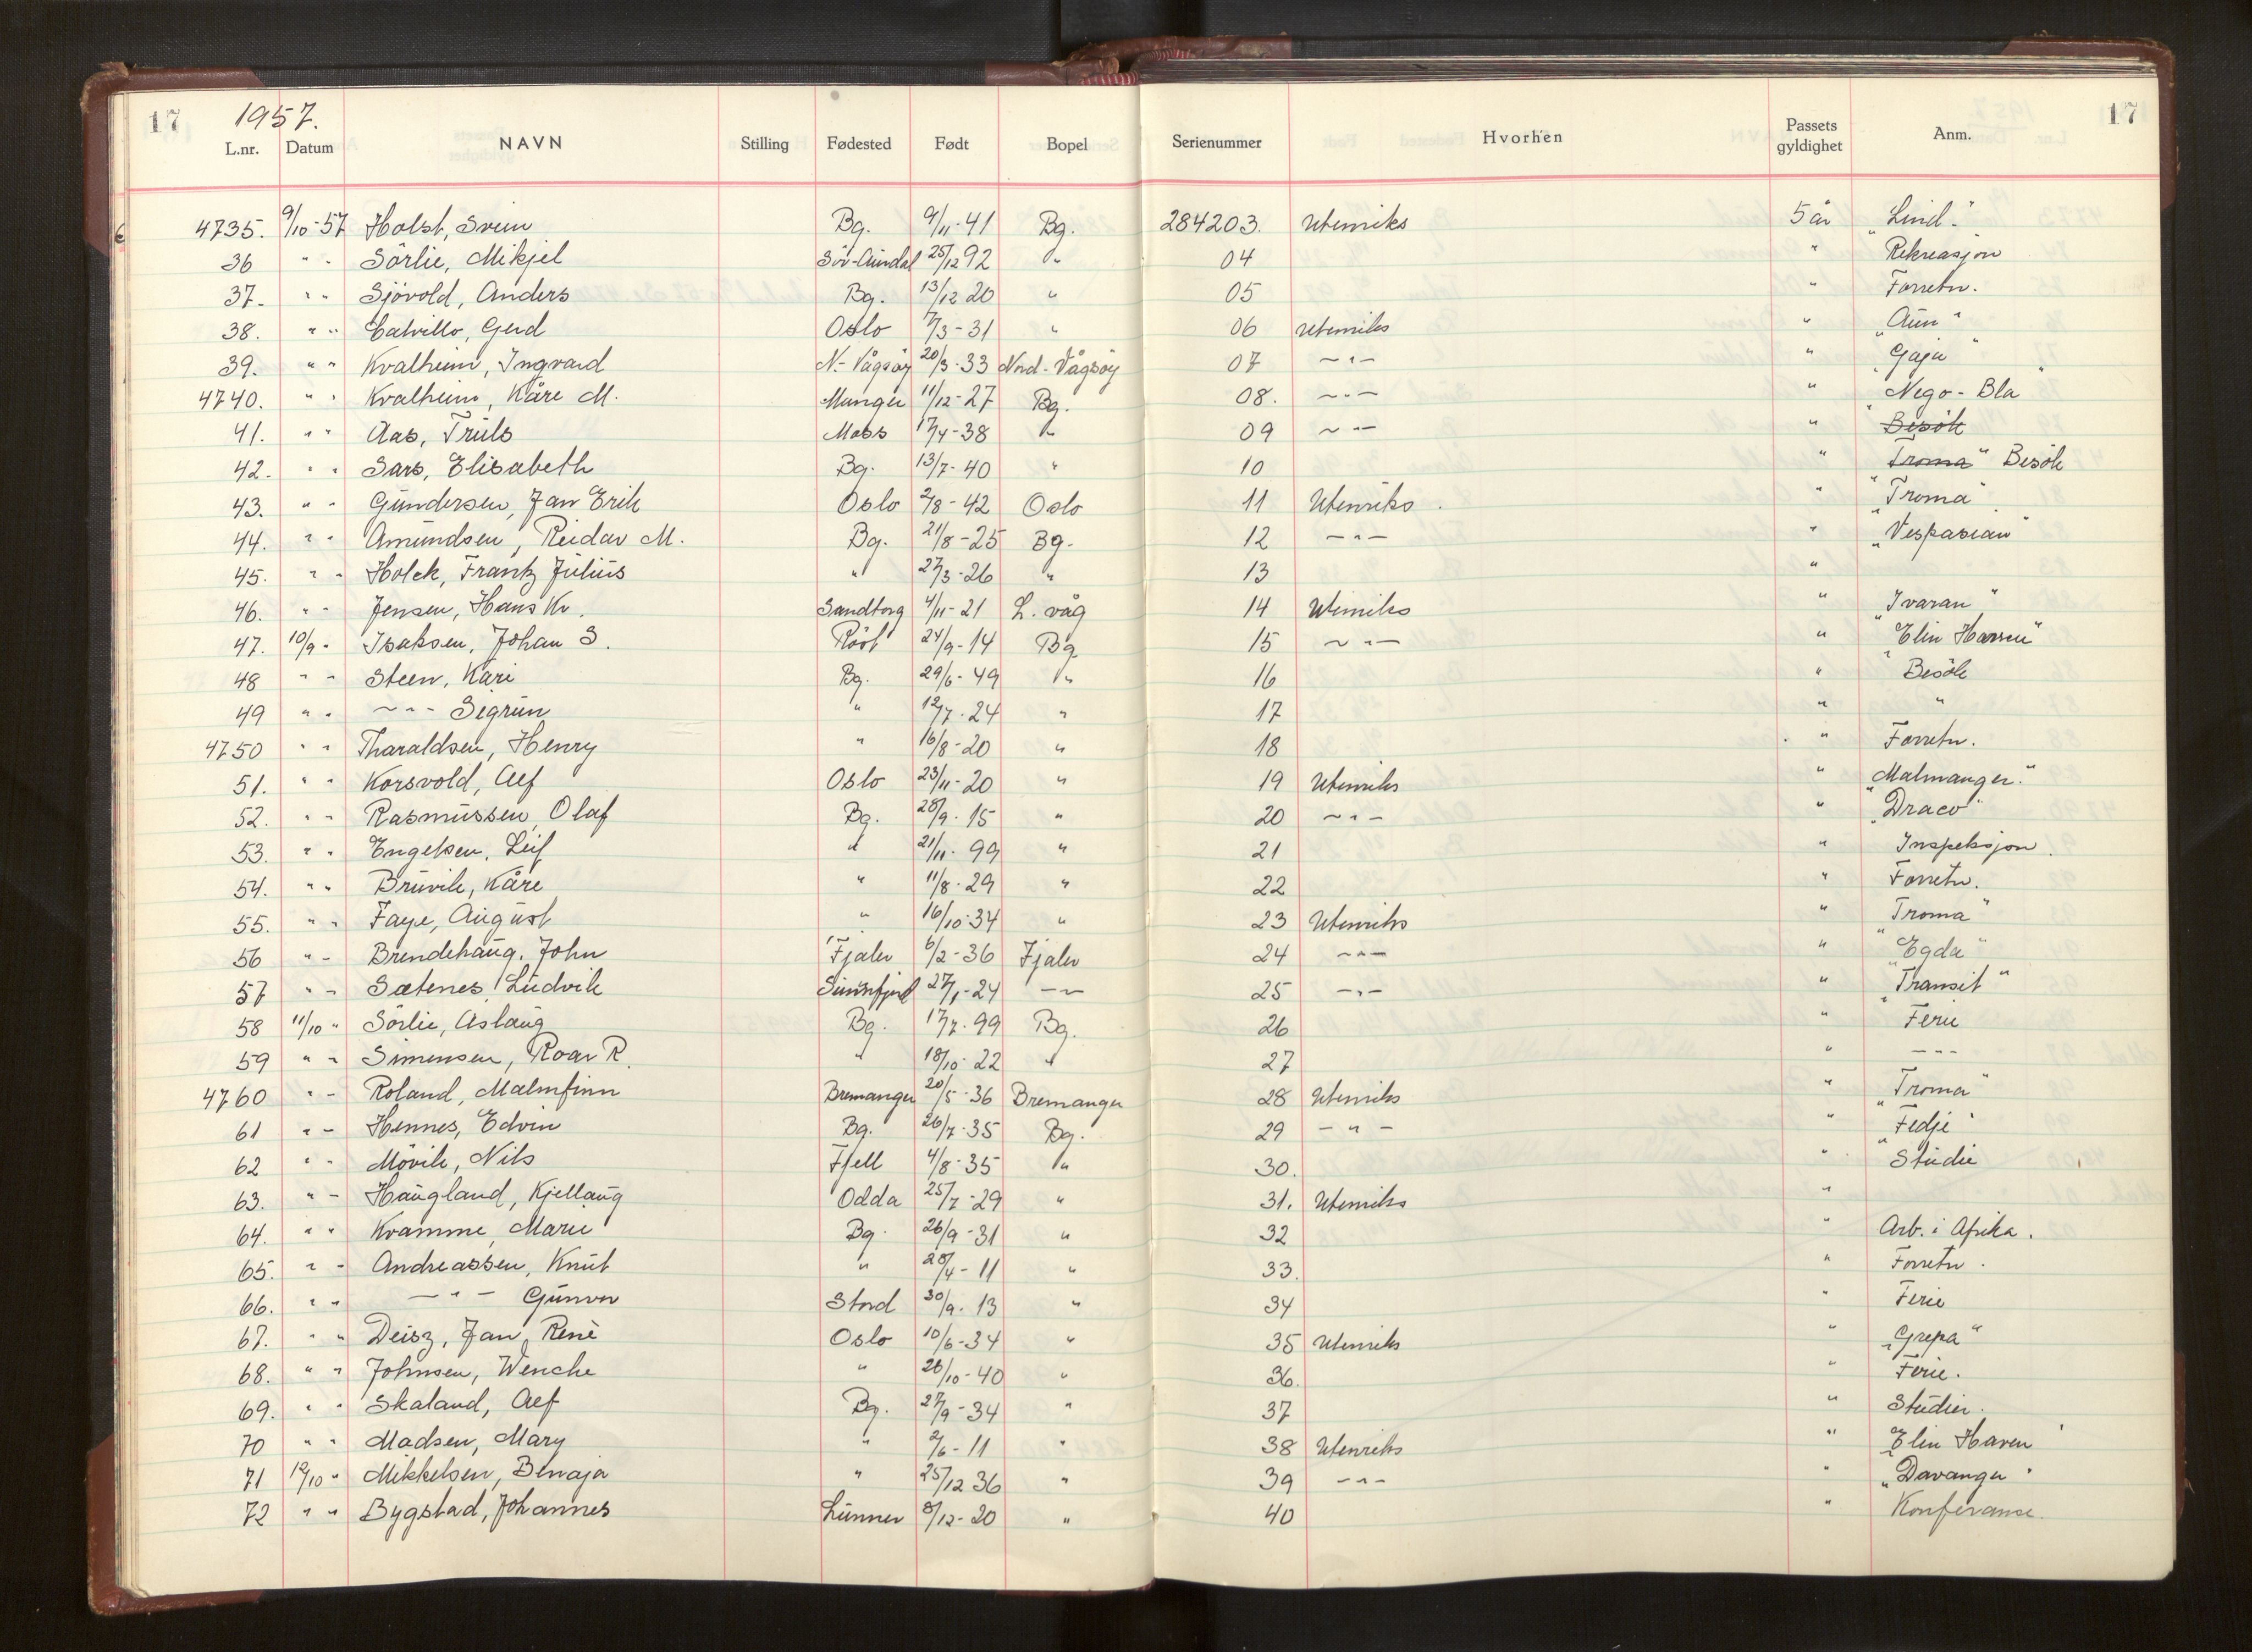 17 1957. 17
L.nr. Datum NAVN Stilling Fødested Født Bopel Serienummer Hvorhen Passets gyldighet Anm.
4735. 9/10-57 Holst, Svein Bg. 9/11-41 Bg. 284203. Utenriks 5 år "Lind."
36 " " Sörlie, Mikjel Sör-Aurdal 25/12 92 " 04 " Rekreasjon
37. " " Sjövold, Anders Bg. 13/12 20 " 05 " Forretn.
38. " " Gerd Oslo 7/3-31 " 06 Utenriks " "Aun"
39. " " Kvalheim, Ingvard N.-Vågsöy 20/3-33 Nord-Vågsöy 07 -"- " "Gaja"
4740. " " Kvalheim, Kåre M. Manger 11/12-27 Bg. 08. -"- " "Nego-Bla"
41. " " Aas, Truls Moss 17/4-38 " 09 -"- " Besök
42. " " Sars, Elisabeth Bg. 13/7-40 " 10 " "Troma" Besök
43. " " Gundersen, Jan Erik Oslo 2/8-42 Oslo 11 Utenriks. " "Troma"
44. " " Amundsen, Reidar M. Bg. 21/8-25 Bg. 12 -"- " "Vespasian"
45. " " Holck, Frantz Julius " 27/3-26 " 13 "
46. " " Jensen, Hans Kr. Sandtorg 4/11-21 L. våg 14 Utenriks " "Ivaran"
47. 10/9 " Isaksen, Johan S. Röst 24/9-14 Bg 15 -"- " "Elin Haven"
48 " " Steen, Kari Bg. 29/6-49 " 16 " Besök
49 " " -"- Sigrun " 12/7-24 " 17 " "
4750 " " Tharaldsen, Henry " 16/8-20 " 18 " Forretn.
51. " " Korsvold, Alf Oslo 23/11-20 " 19 Utenriks " "Malmanger."
52. " " Rasmussen, Olaf Bg. 28/9-15 " 20 -"- " "Draco"
53. " " Engelsen, Leif " 21/11-99 " 21 " Inspeksjon.
54. " " Bruvik, Kåre " 11/8-29 " 22 " Forretn.
55. " " Faye, August " 16/10-34 " 23 Utenriks " "Troma"
56 " " Brendehaug, John Fjaler 6/2-36 Fjaler 24 -"- " "Egda"
57 " " Sætenes, Ludvik Sunnfjord 27/1-24 -"- 25 -"- " "Transit"
58 11/10 " Sörlie, Aslaug Bg. 17/7-99 Bg. 26 " Ferie
59 " " Simensen, Roar R. " 18/10-22 " 27 " -"-
4760 " " Roland, Malmfinn Bremanger 20/5-36 Bremanger 28 Utenriks " "Troma"
61 " " Hennes, Edvin Bg. 26/7-35 Bg. 29 -"- " "Fedje"
62 " " Mövik, Nils Fjell 4/8-35 " 30. " Studie
63. " " Haugland, Kjellaug Odda 25/7-29 " 31. Utenriks "
64. " " Kvamme, Marie Bg. 26/9-31 " 32 " Arb. i Afrika.
65. " " Andreassen, Knut " 28/4-11 " 33. " Forretn.
66. " " -"- Gunvor Stord 30/9-13 " 34 " Ferie
67. " " Deisz, Jan René Oslo 10/6-34 " 35 Utenriks " "Grepa"
68. " " Johnsen, Wenche " 26/10-40 " 36. " Ferie.
69. " " Skaland, Alf Bg. 27/9-34 " 37 " Studier.
70 " " Madsen, Mary " 2/6-11 " 38 Utenriks " "Elin Haven"
71 12/10 " Mikkelsen, Benaja " 25/12 36 " 39 -"- " "Davanger"
72 " " Bygstad, Johannes Lunner 8/12-20 " 40 " Konferanse.